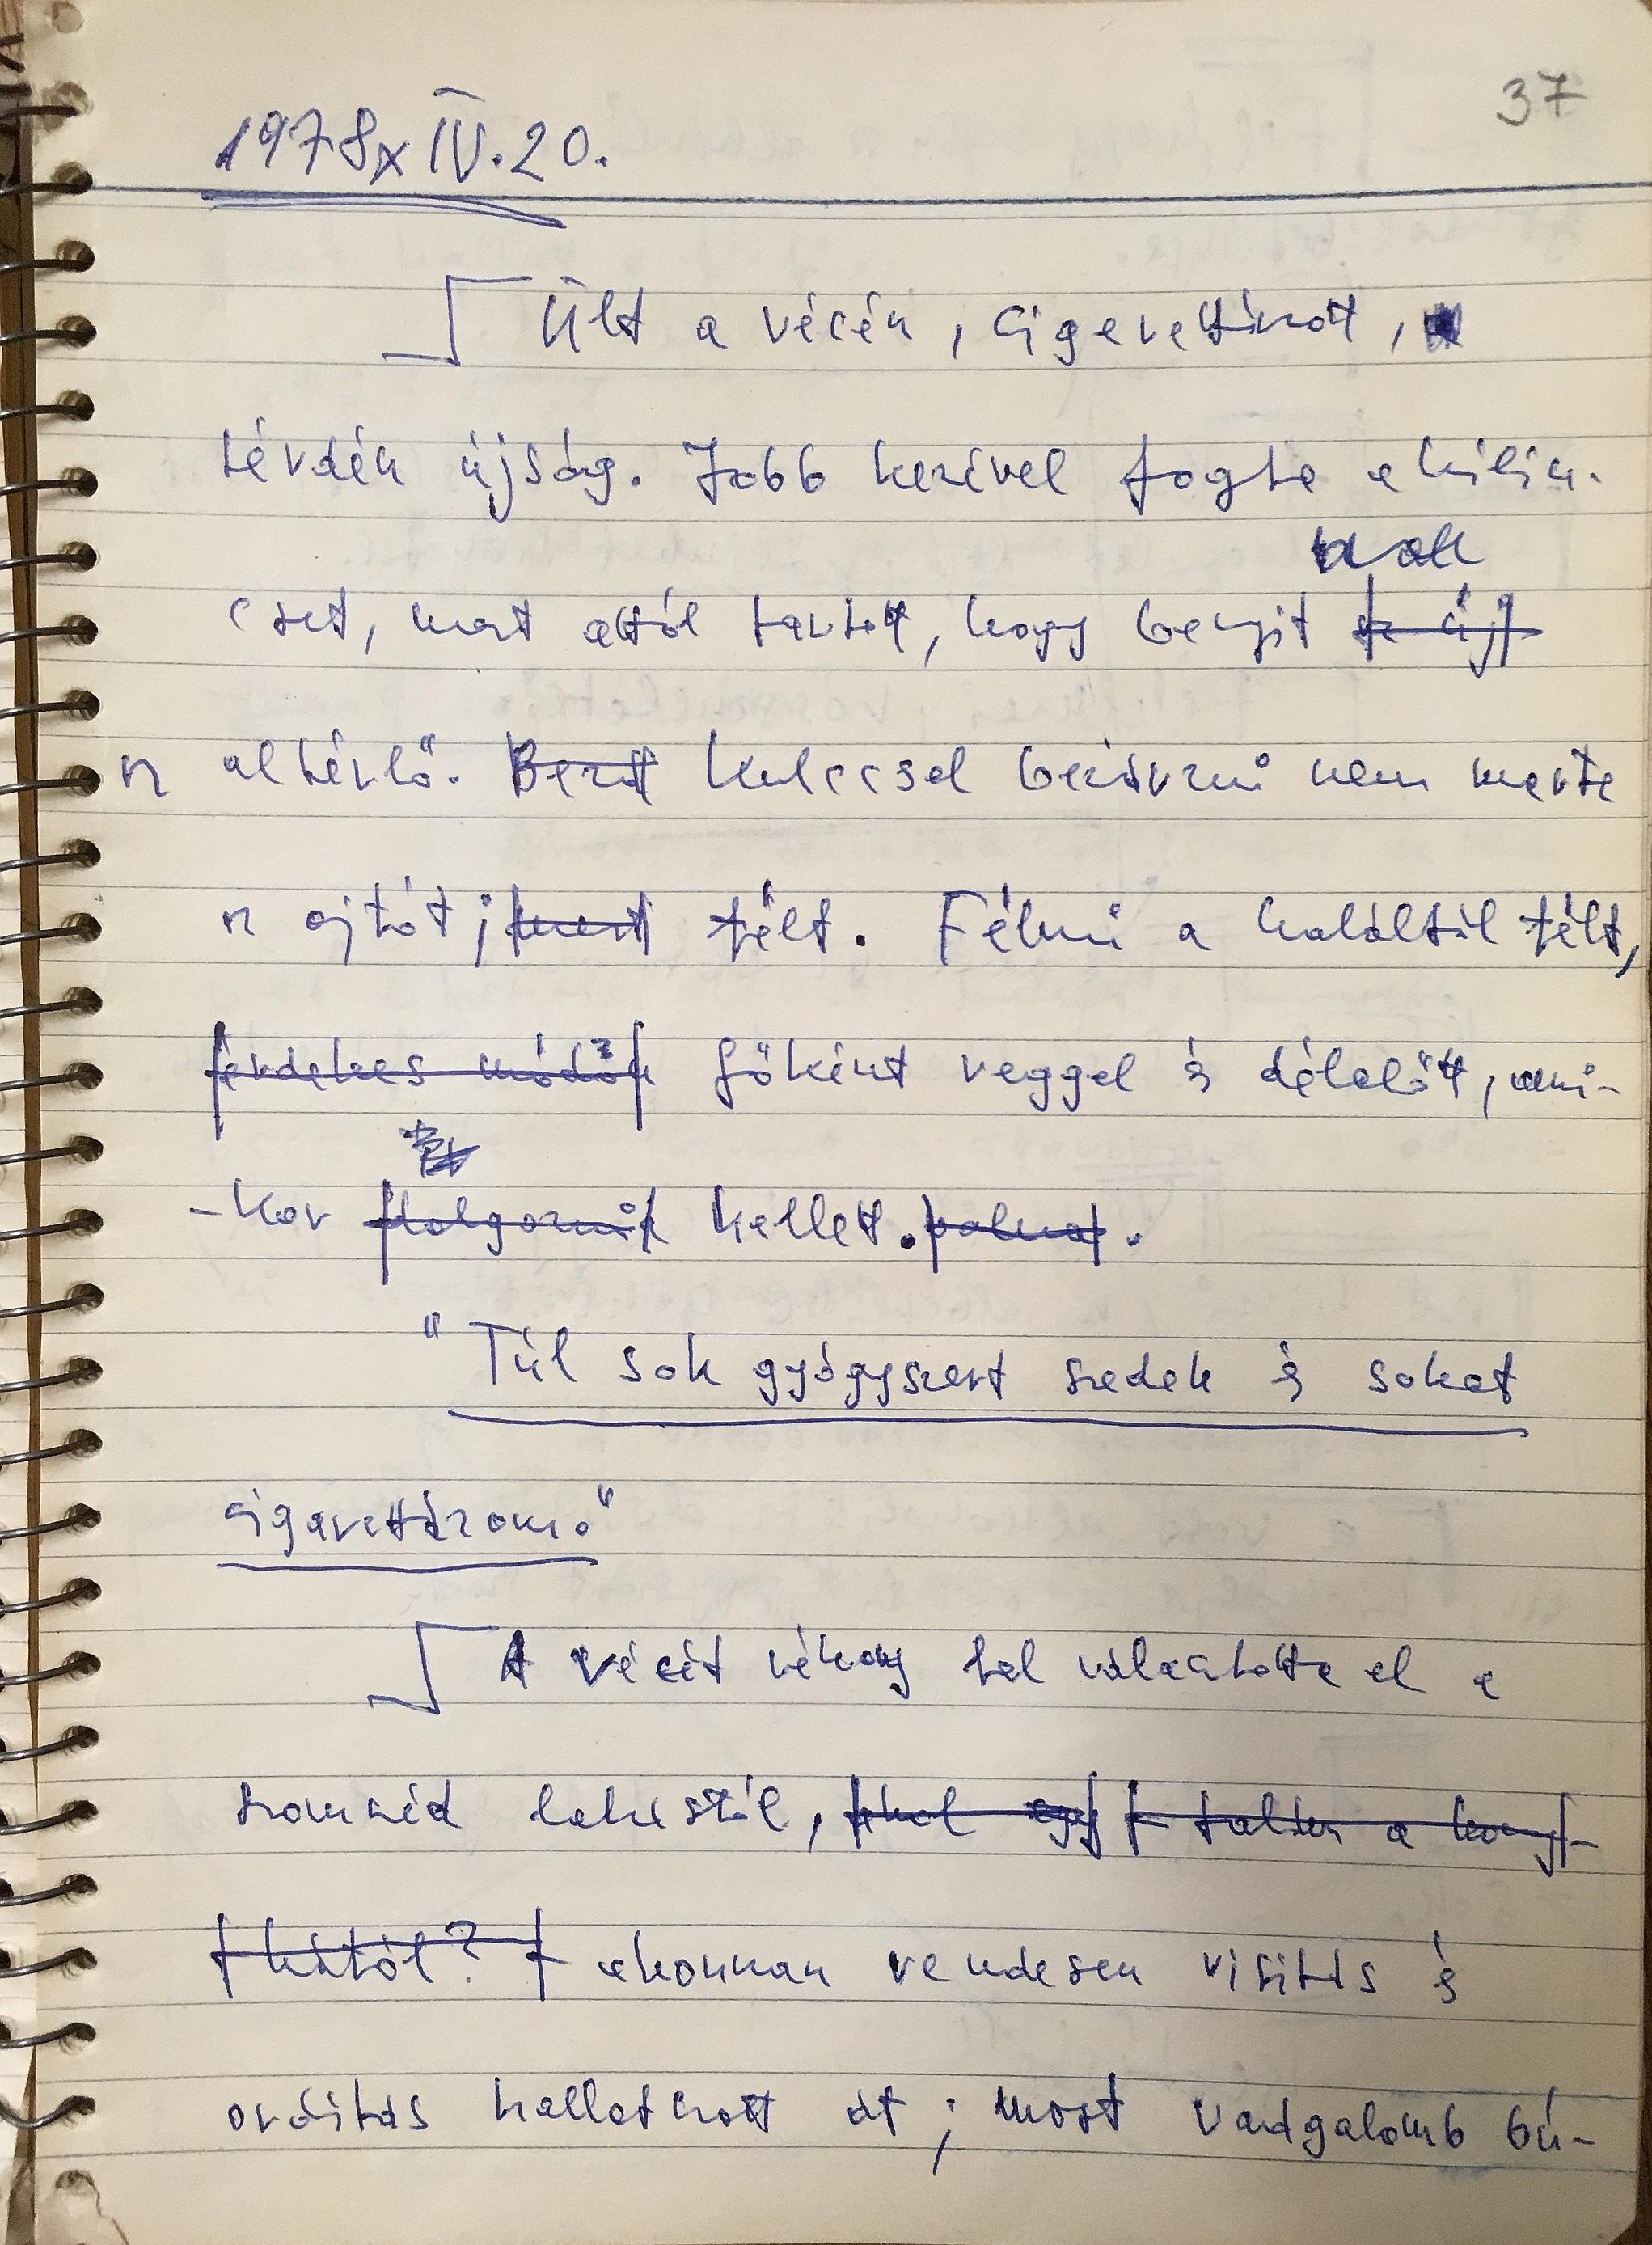 37
1978x IV. 20.
Ült a vécén, cigarettázott,
térdén újság. Jobb kezével fogta a kilin-
csak
cset, mert attól tartott, hogy benyit az új
az albérlő. Bezárt kulccsal bezárni nem merte
az ajtót; mert félt. Félni a haláltól félt,
érdekes módon főként reggel és délelőtt, ami-
-kor dolgozni kellett. volna.
"Túl sok gyógyszert szedek és sokat
cigarettázom."
A vécét vékony fal választotta el a
szomszéd lakástól, ahol egy fallal a kony-
hától? ahonnan rendesen visítás és
ordítás hallatszott át; most vadgalamb bú-